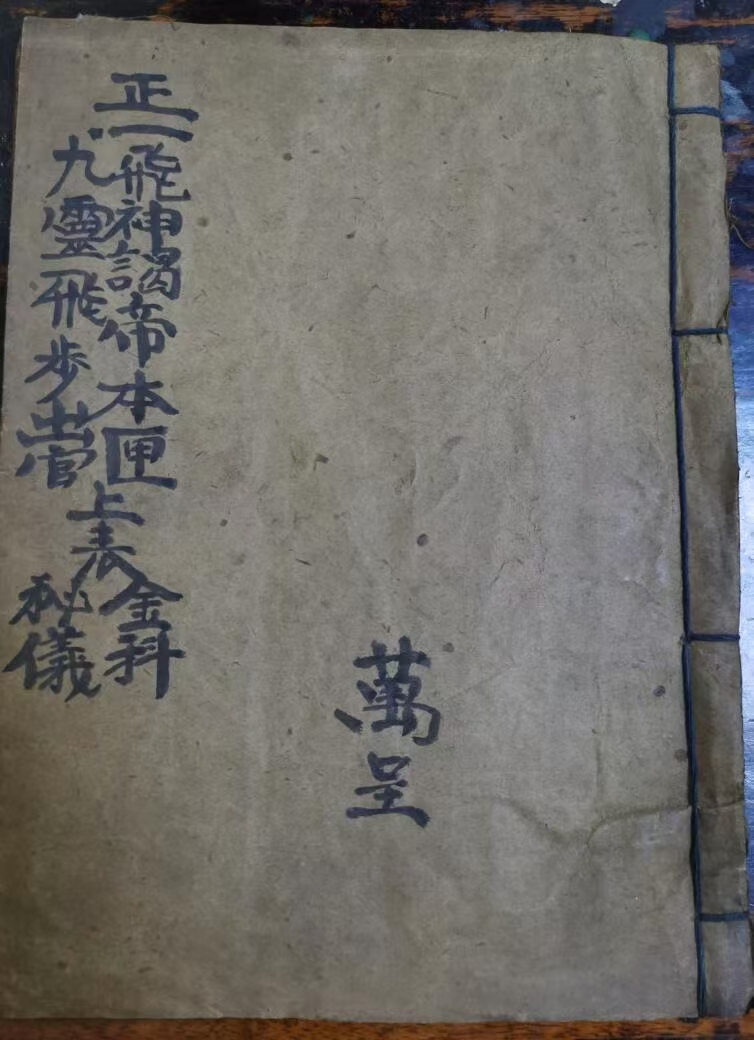 正一飛神謁帝本匣
九靈飛步出官
上表
金科
秘儀
萬呈